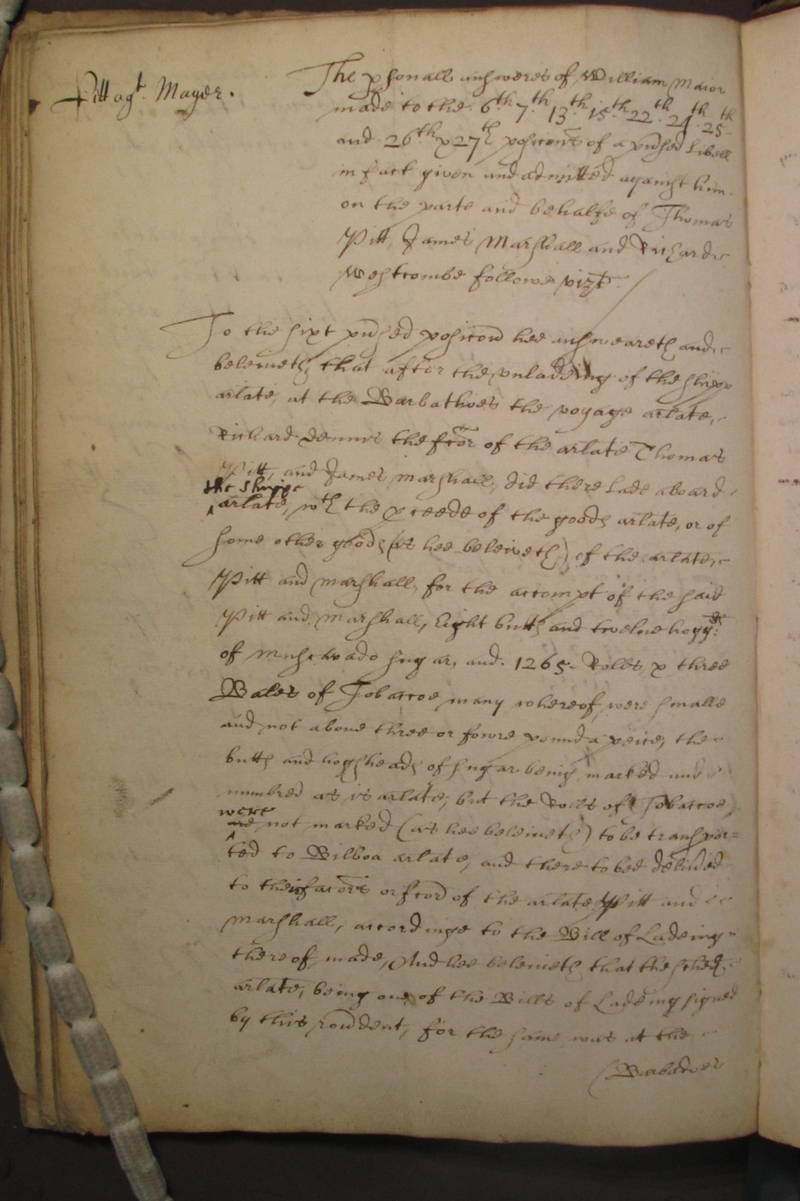 Pitt agt. Mayer.
The psonall answeres of William Maior
made to the 6th 7th. 13th 15th. 22th 24th 25th
and 26th & 27th posicons of a ptnsed Libell
in fact given and admitted against him
on the parte and behalfe of Thomas
Pitt, James Marshall and Richard
Westcombe followe vizt.
To the sixt ptnsed posicon hee answeareth and
beleiveth that after the unladeing of the shipp
arlate, at the Barbathoes the voyage arlate,
Richard Dennis the fcor of the arlate Thomas
Pitt, and James Marshall, did there lade aboard
the shippe
arlate, wth the pceede of the goods arlate, or of
some other goods (as hee beleiveth) of the arlate
Pitt and Marshall, for the accompt of the said
Pitt and Marshall, Eight butts and twelve hoggds:
of Muscavado sugar, and. 1265. Rolls & three
Bales of Tobaccoe many whereof were smalle
and not above three or fowre pound a peice, the
butts and hogsheads of sugar being marked and
numbred as is arlate, but the Rolls of Tobaccoe,
were
are not marked (as hee beleiveth) to be transpor=
ted to Bilboa arlate, and there to bee delived
to their facors or fcor of the arlate Pitt and
Marshall, accordinge to the Bill of Ladeing
thereof made, And hee beleiveth that the sched.
arlate, being one of the Bills of Ladeing signed
by this rondent, for the same was at the
Babadoes